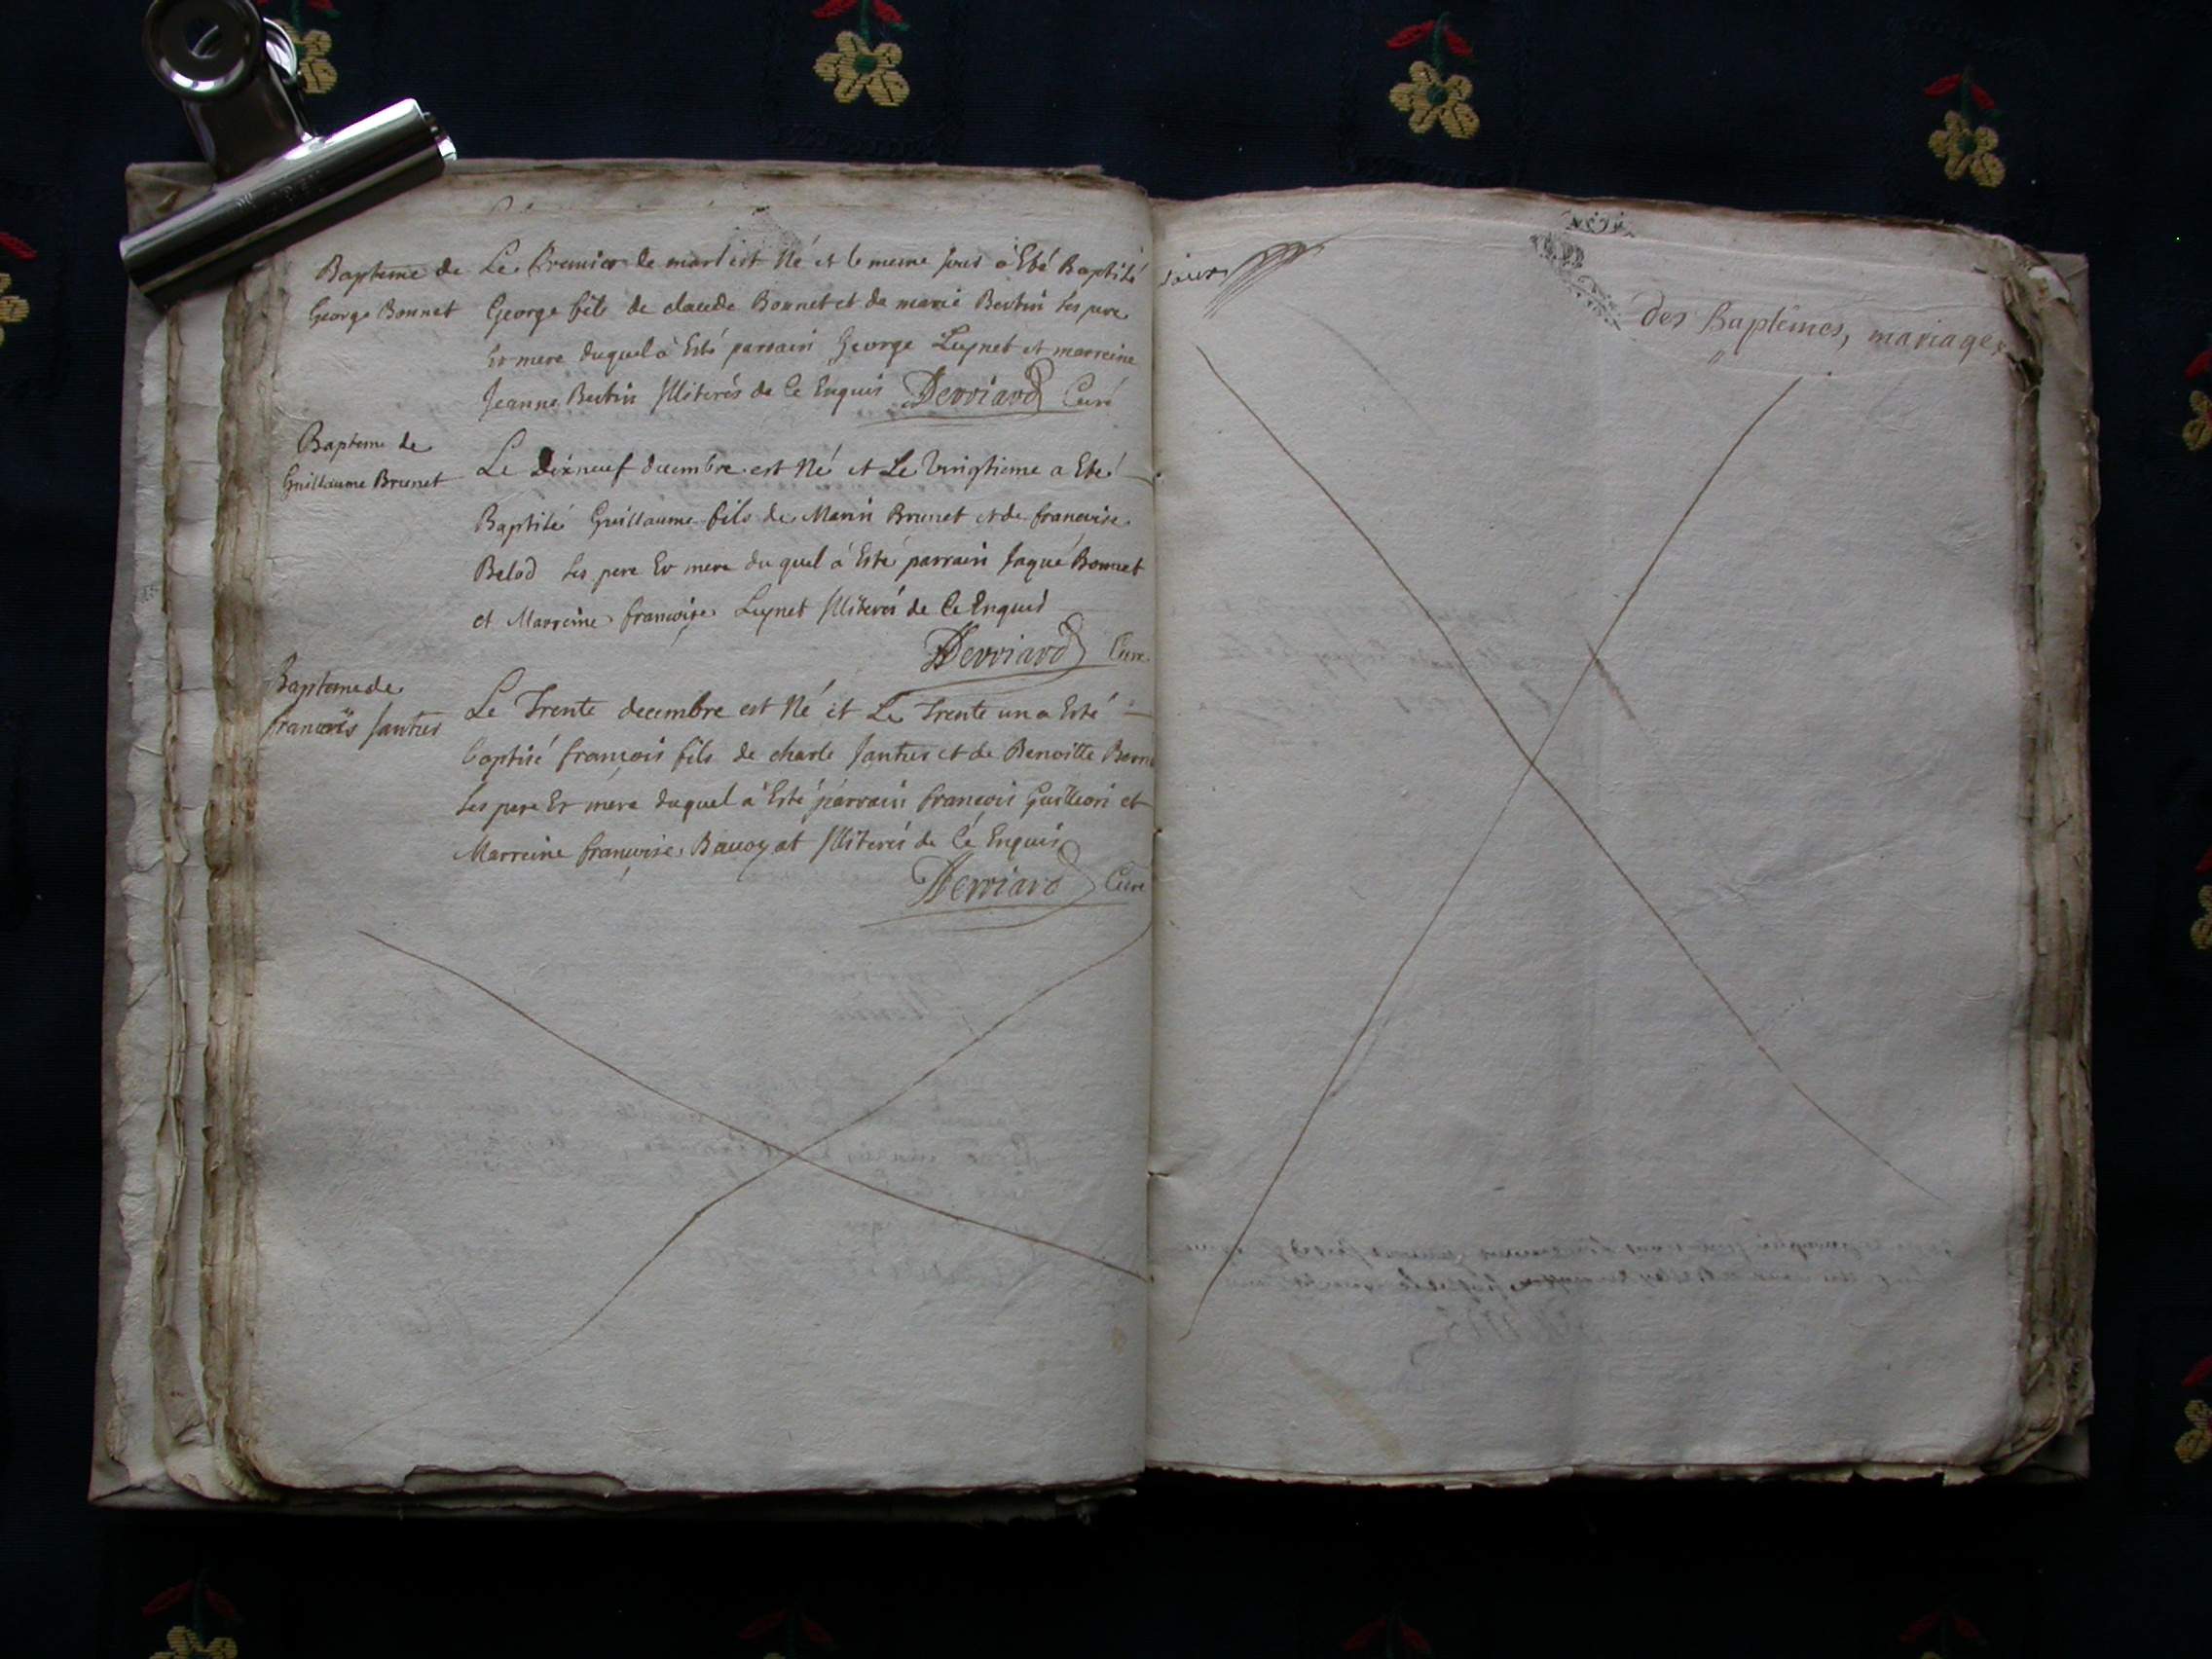 Bapteme de
George Bonnet
Le Premier de mars est Né et le meme jour à Esté Baptisé
George fils de claude Bonnet et de marie Bertin ses pere
Et mere duquel à Esté parrain George Luynet et marreine
Jeanne Bertin Illiterés de Ce Enquis Derriard Curé
Bapteme de
Guillaume Brunet
Le Dixneuf decembre est Né et Le Vingtieme a Eté
Baptisé Guillaume fils de Marin Brunet et de francoise
Belod ses pere Et mere du quel à Esté parrain Jaque Bonnet
et Marreine francoise Luynet Illiterés de Ce Enquis
Derriard Curé
Bapteme de
francois Jantet
Le Trente decembre est Né et Le Trente un a Esté
baptisé françois fils de charle Jantet et de Benoitte
ses pere Et mere duquel à Esté parrain françois Guilleon et
Marreine françoise Illiterés de Cé Enquis
Derriard Curé
des Baptêmes, mariages